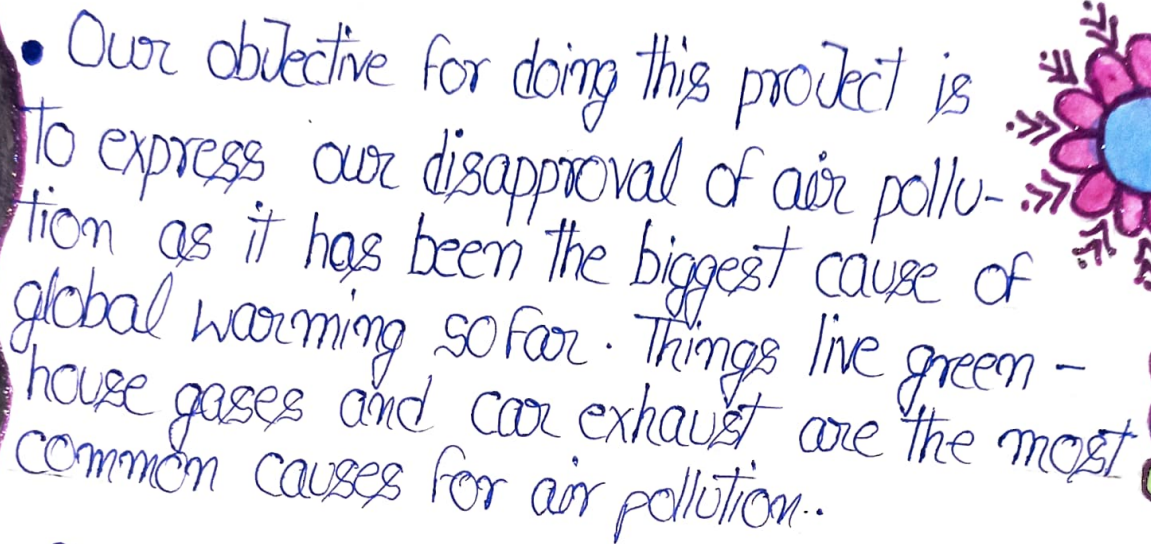 • Our objective for doing this project is
to express our disapproval of air pollu-
tion as it has been the biggest cause of
global warming so far. Things live green-
house gases and car exhaust are the most
common causes for air pollution..